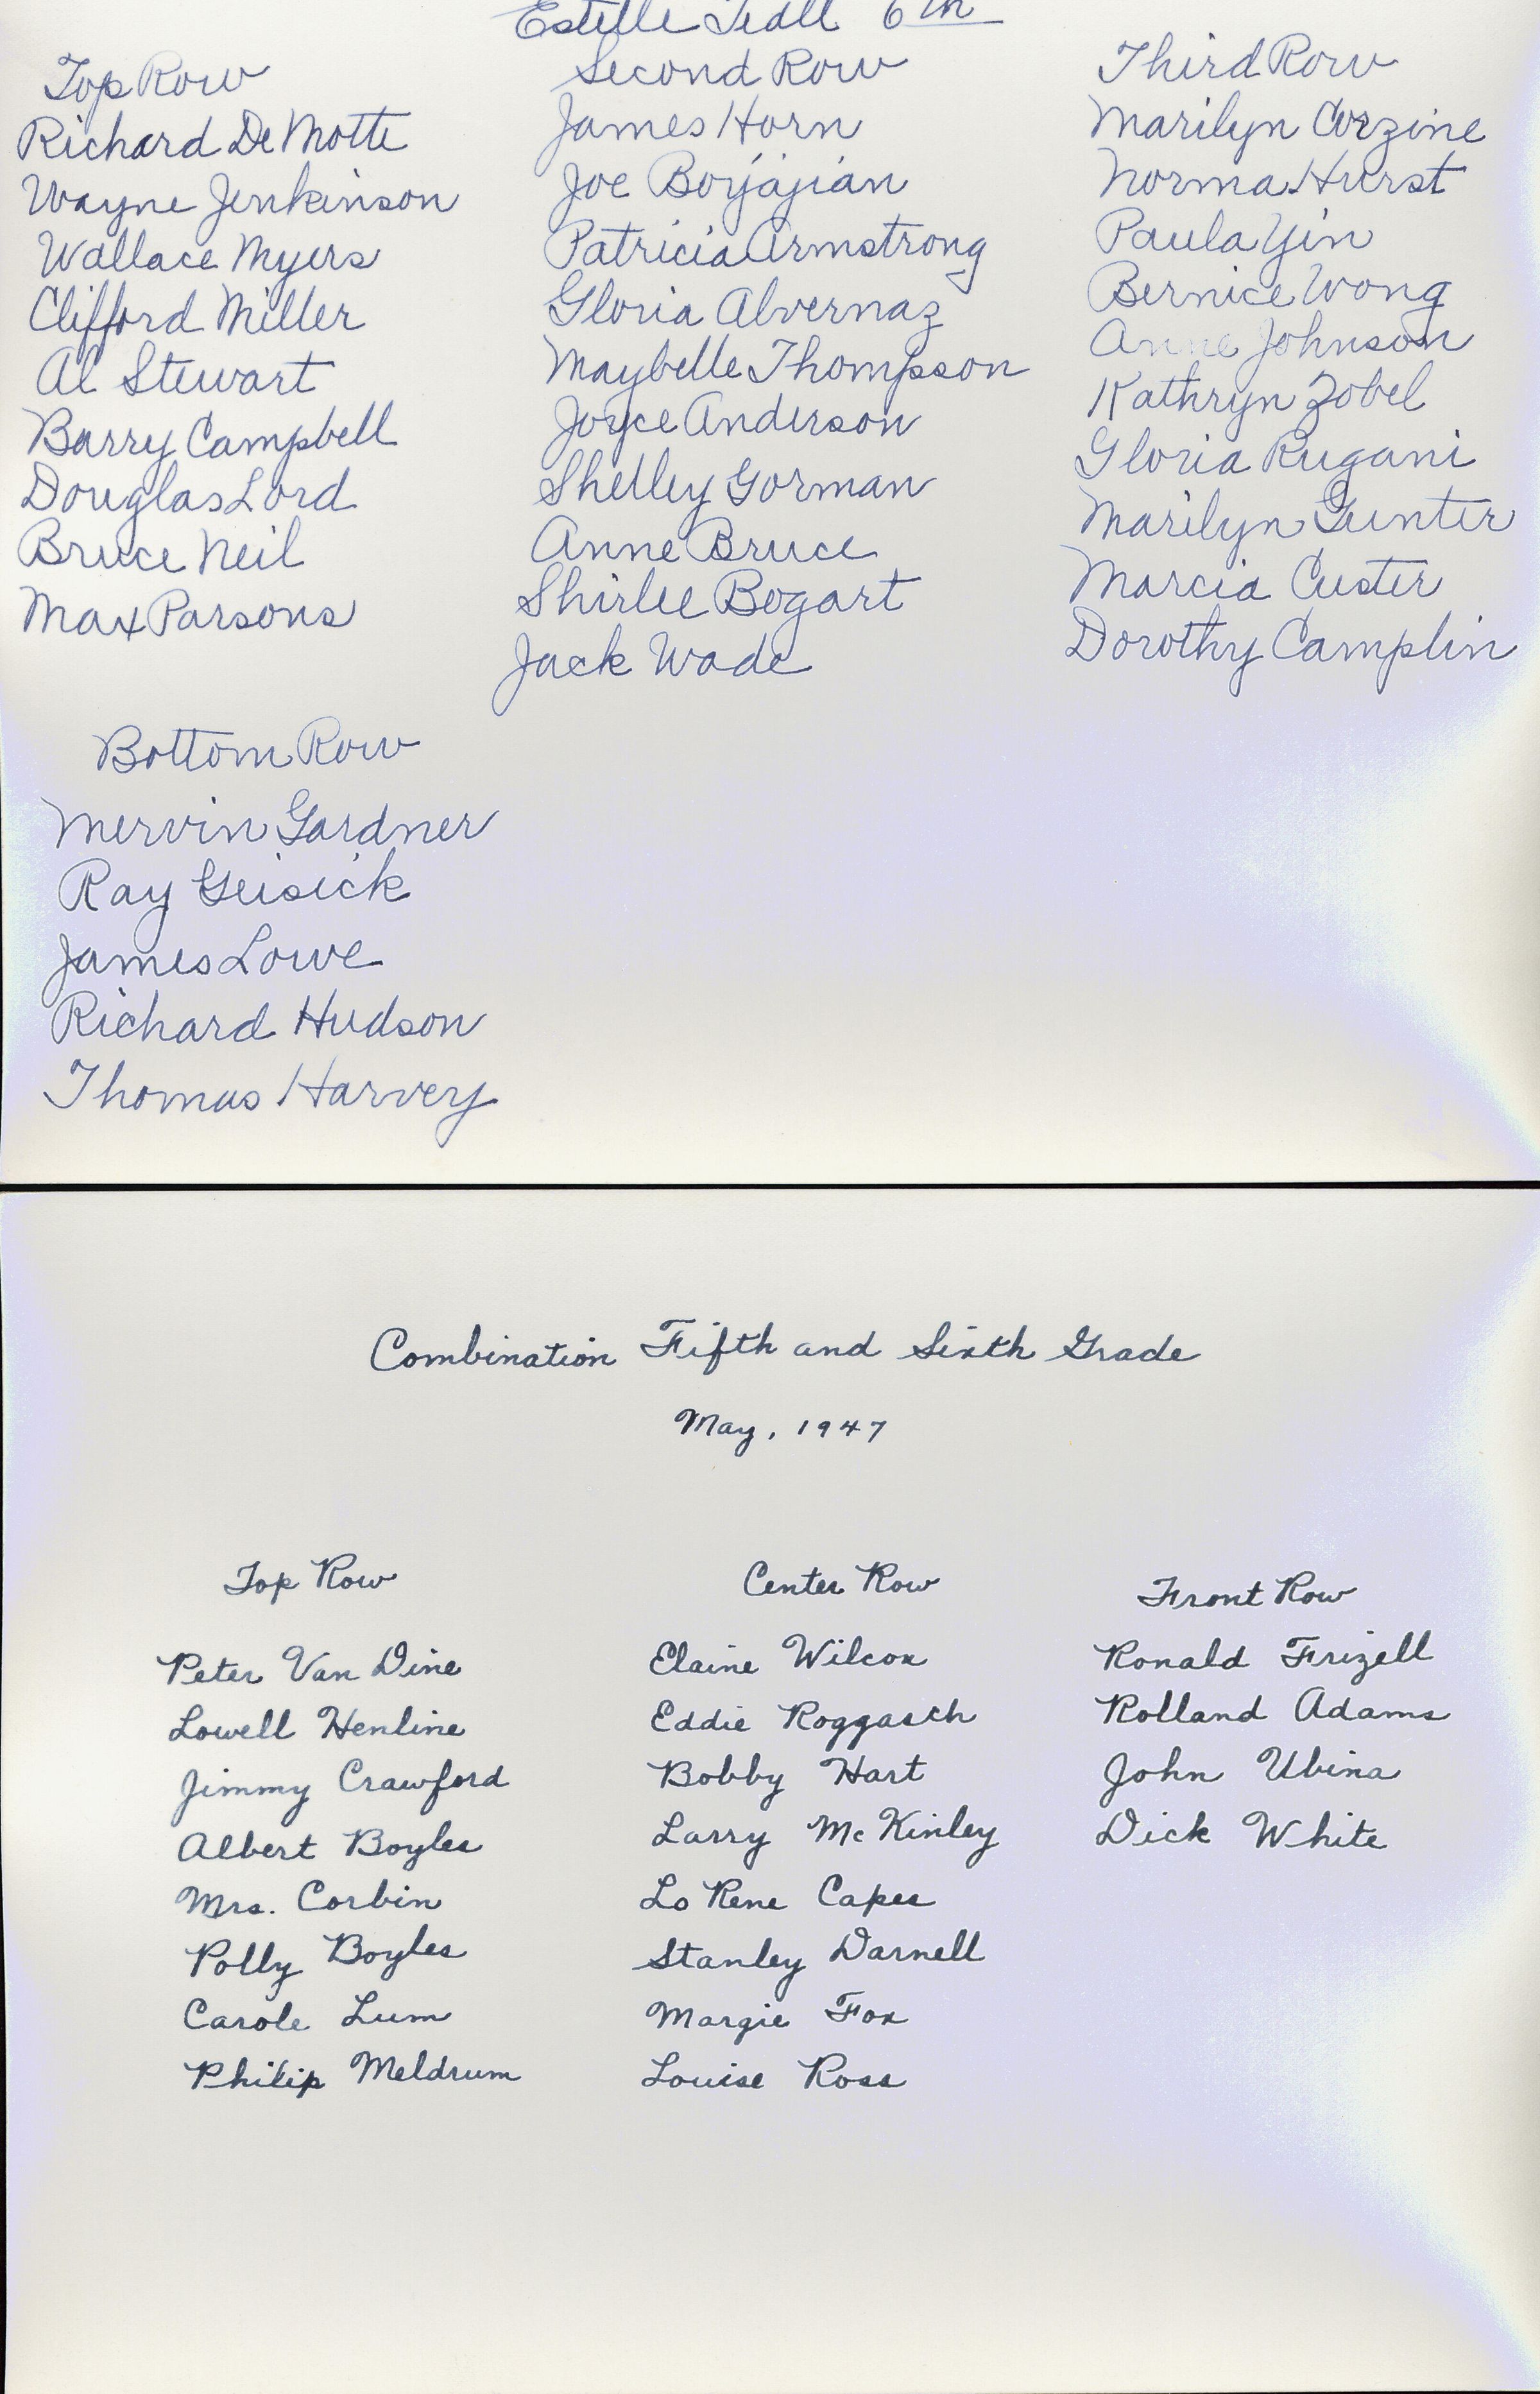 Estelle 6th
Top Row
Richard De Motte
Wayne Jenkinson
Wallace Myers
Clifford Miller
Al Stewart
Barry Campbell
Douglas Lord
Bruce Neil
Max Parsons
Second Row
James Horn
Joe Boyajian
Patricia Armstrong
Gloria Alvernaz
Maybelle Thompson
Joyce Anderson
Shelley Gorman
Anne Bruce
Shirlee Bogart
Jack Wade
Third Row
Marilyn Corzine
Norma Hurst
Paula Yin
Bernice Wong
Anne Johnson
Kathryn Zobel
Gloria Rugani
Marilyn Gunter
Marcia Custer
Dorothy Camplin
Bottom Row
Mervin Gardner
Ray Geisick
James Lowe
Richard Hudson
Thomas Harvey
Combination Fifth and Sixth Grade
May, 1947
Top Row
Peter Van Dine
Lowell Henline
Jimmy Crawford
Albert Boyles
Mrs. Corbin
Polly Boyles
Carole Lum
Philip Meldrum
Center Row
Elaine Wilcox
Eddie Roggasch
Bobby Hart
Larry McKinley
Lo Rene Capes
Stanley Darnell
Margie Fox
Louise Ross
Front Row
Ronald Frizell
Rolland Adams
John Ubina
Dick White